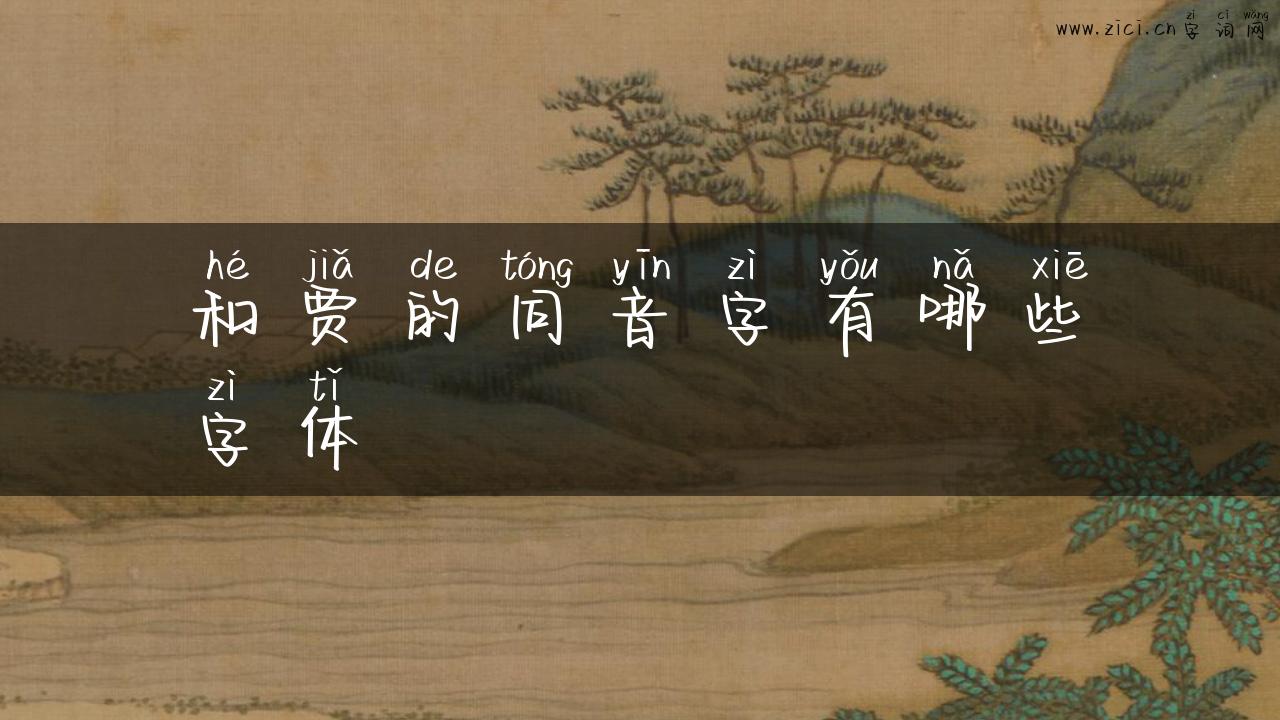 zì cí wǎng
www.zici.cn 字词网
hé jiǎ de tóng yīn zì yǒu nǎ xiē
和贾的同音字有哪些
zì tǐ
字体